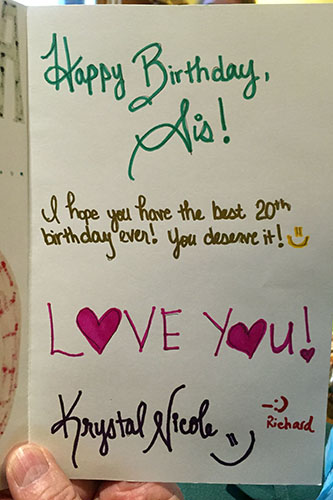 Happy Birthday,
Sis!
I hope you have the best 20th
birthday ever! You deserve it!
LOVE YOU!
Krystal Nicole
Richard